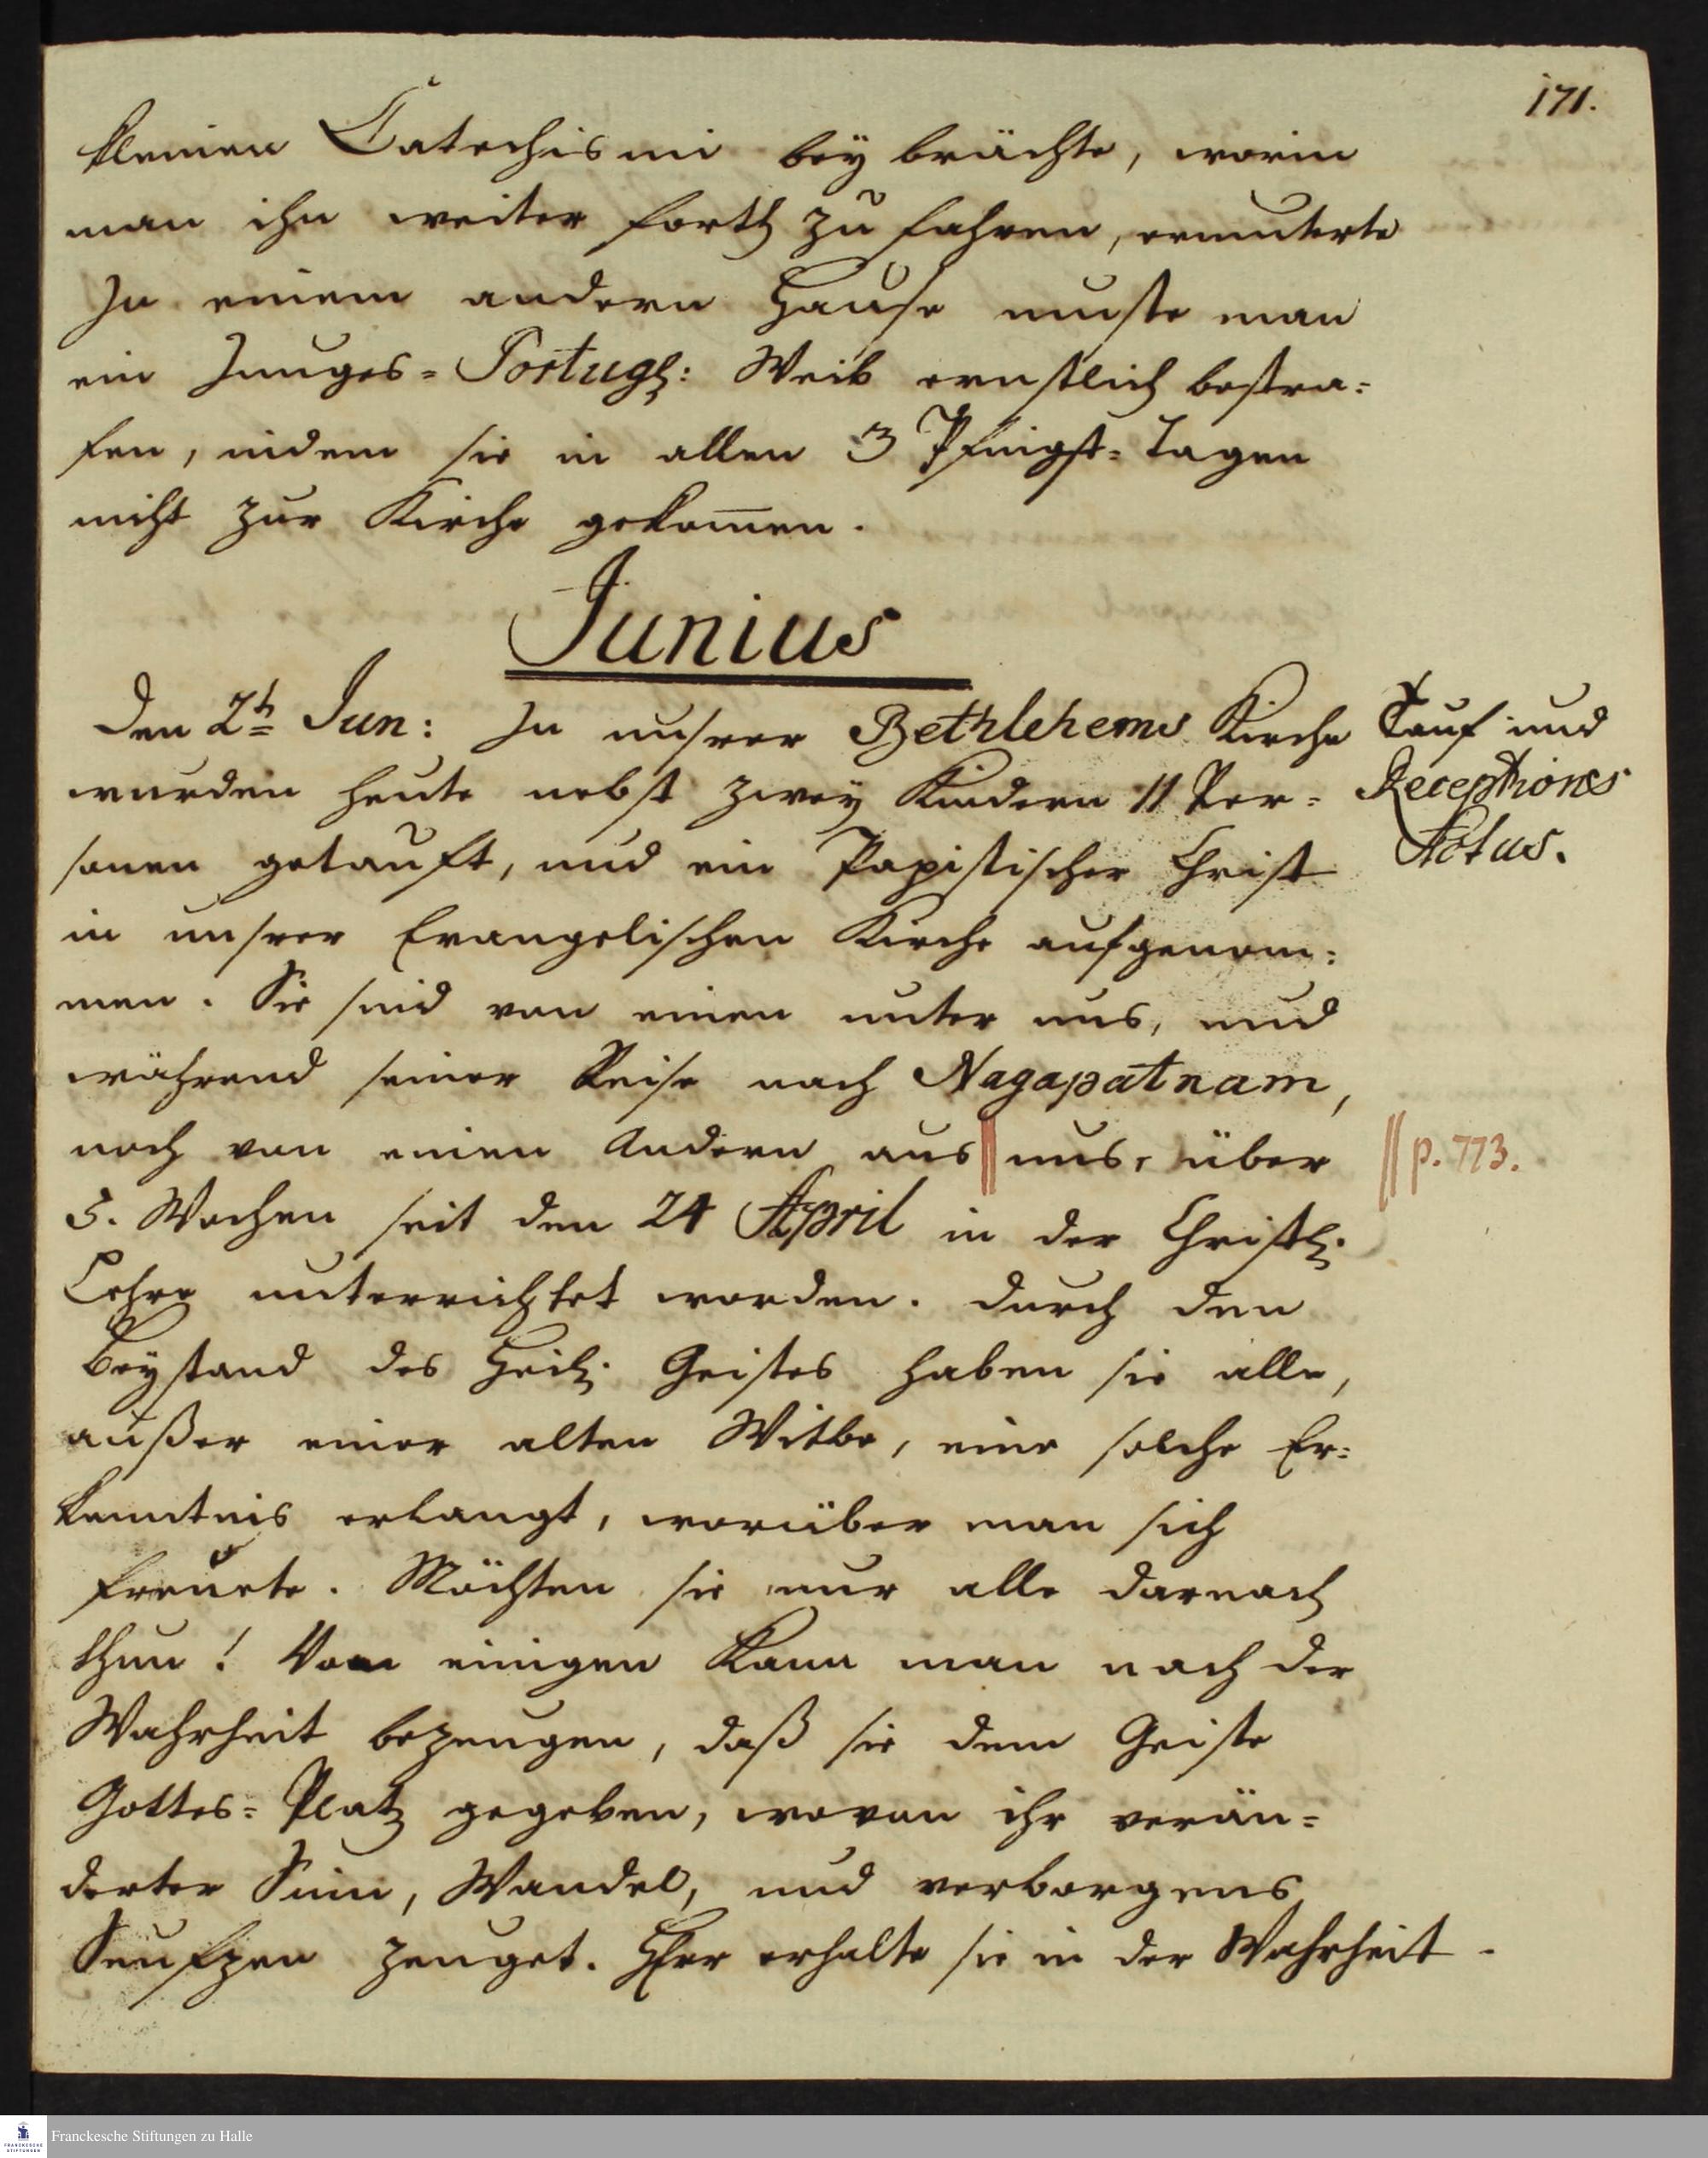 171.
kleinen Catechismi bey brächte, worin
man ihn weiter forth zu fahren, ermunterte
In einem andern Hause muste man
ein Junges=Portugl: Weib ernstlich bestra=
fen, indem sie in allen 3 Pfingst=Tagen
nicht zur Kirche gekom̄en.
Junius
Den 2t Jun: In unsrer Bethlehems Kirche
wurden heute nebst zwey Kindern 11 Per=
sonen getauft, und ein Papistischer Christ
in unsrer Evangelischen Kirche aufgenom=
men. Sie sind von einen unter uns, und
während seiner Reise nach Nagapatnam,
noch von einen Andern aus || uns, über
5. Wochen seit den 24 April in der Christl.
Lehre unterrichtet worden. Durch den
Beystand des Heil. Geistes haben sie alle,
außer einer alten Witbe, eine solche Er=
kenntnis erlangt, worüber man sich
freuete. Möchten sie nur alle darnach
thun! Von einigen kann man nach der
Wahrheit bezeugen, daß sie dem Geiste
Gottes=Platz gegeben, wovon ihr verän=
derter Sinn, Wandel, und verborgens
Seufzen zeuget. HErr erhalte sie in der Wahrheit.
Tauf und
Receptions
Actus.
|| p. 773.
FRANCKESCHE
STIFTUNGEN
Franckesche Stiftungen zu Halle